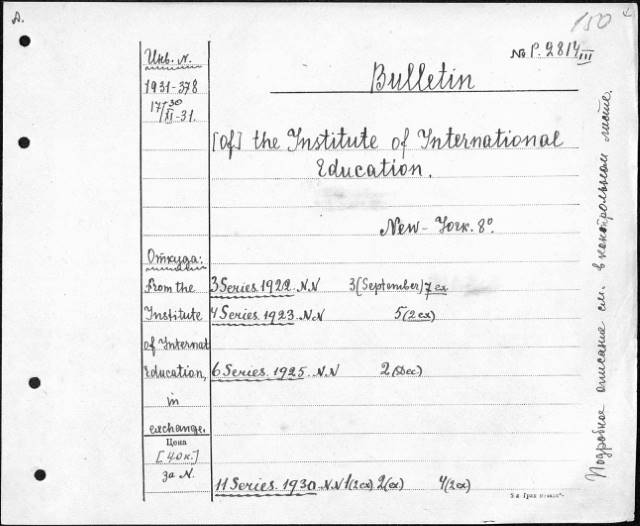 A.
150
Инв. N.
1931-378
17/30 II-31.
No P. 2814 III
Bulletin
[of] the Institute of International
Education.
New-York. 8°.
Откуда:
From the
Institute
of Internat
Education,
in
exchange.
Цена
[40к.]
за N.
3 Series 1922. N.N 3 (September) 7 ex
4 Series. 1923. N.N 5 (2ex)
6 Series. 1925. N.N 2 (Dec)
11 Series. 1930. N.N 1 (2ex) 2 (ex) 4 (2ex)
Подробное описание см. в контрольном листе.